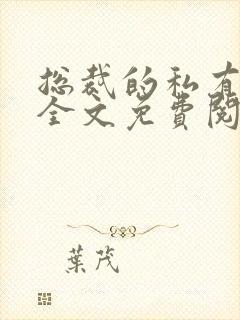 總裁的私有
全文免費閱
葉茂